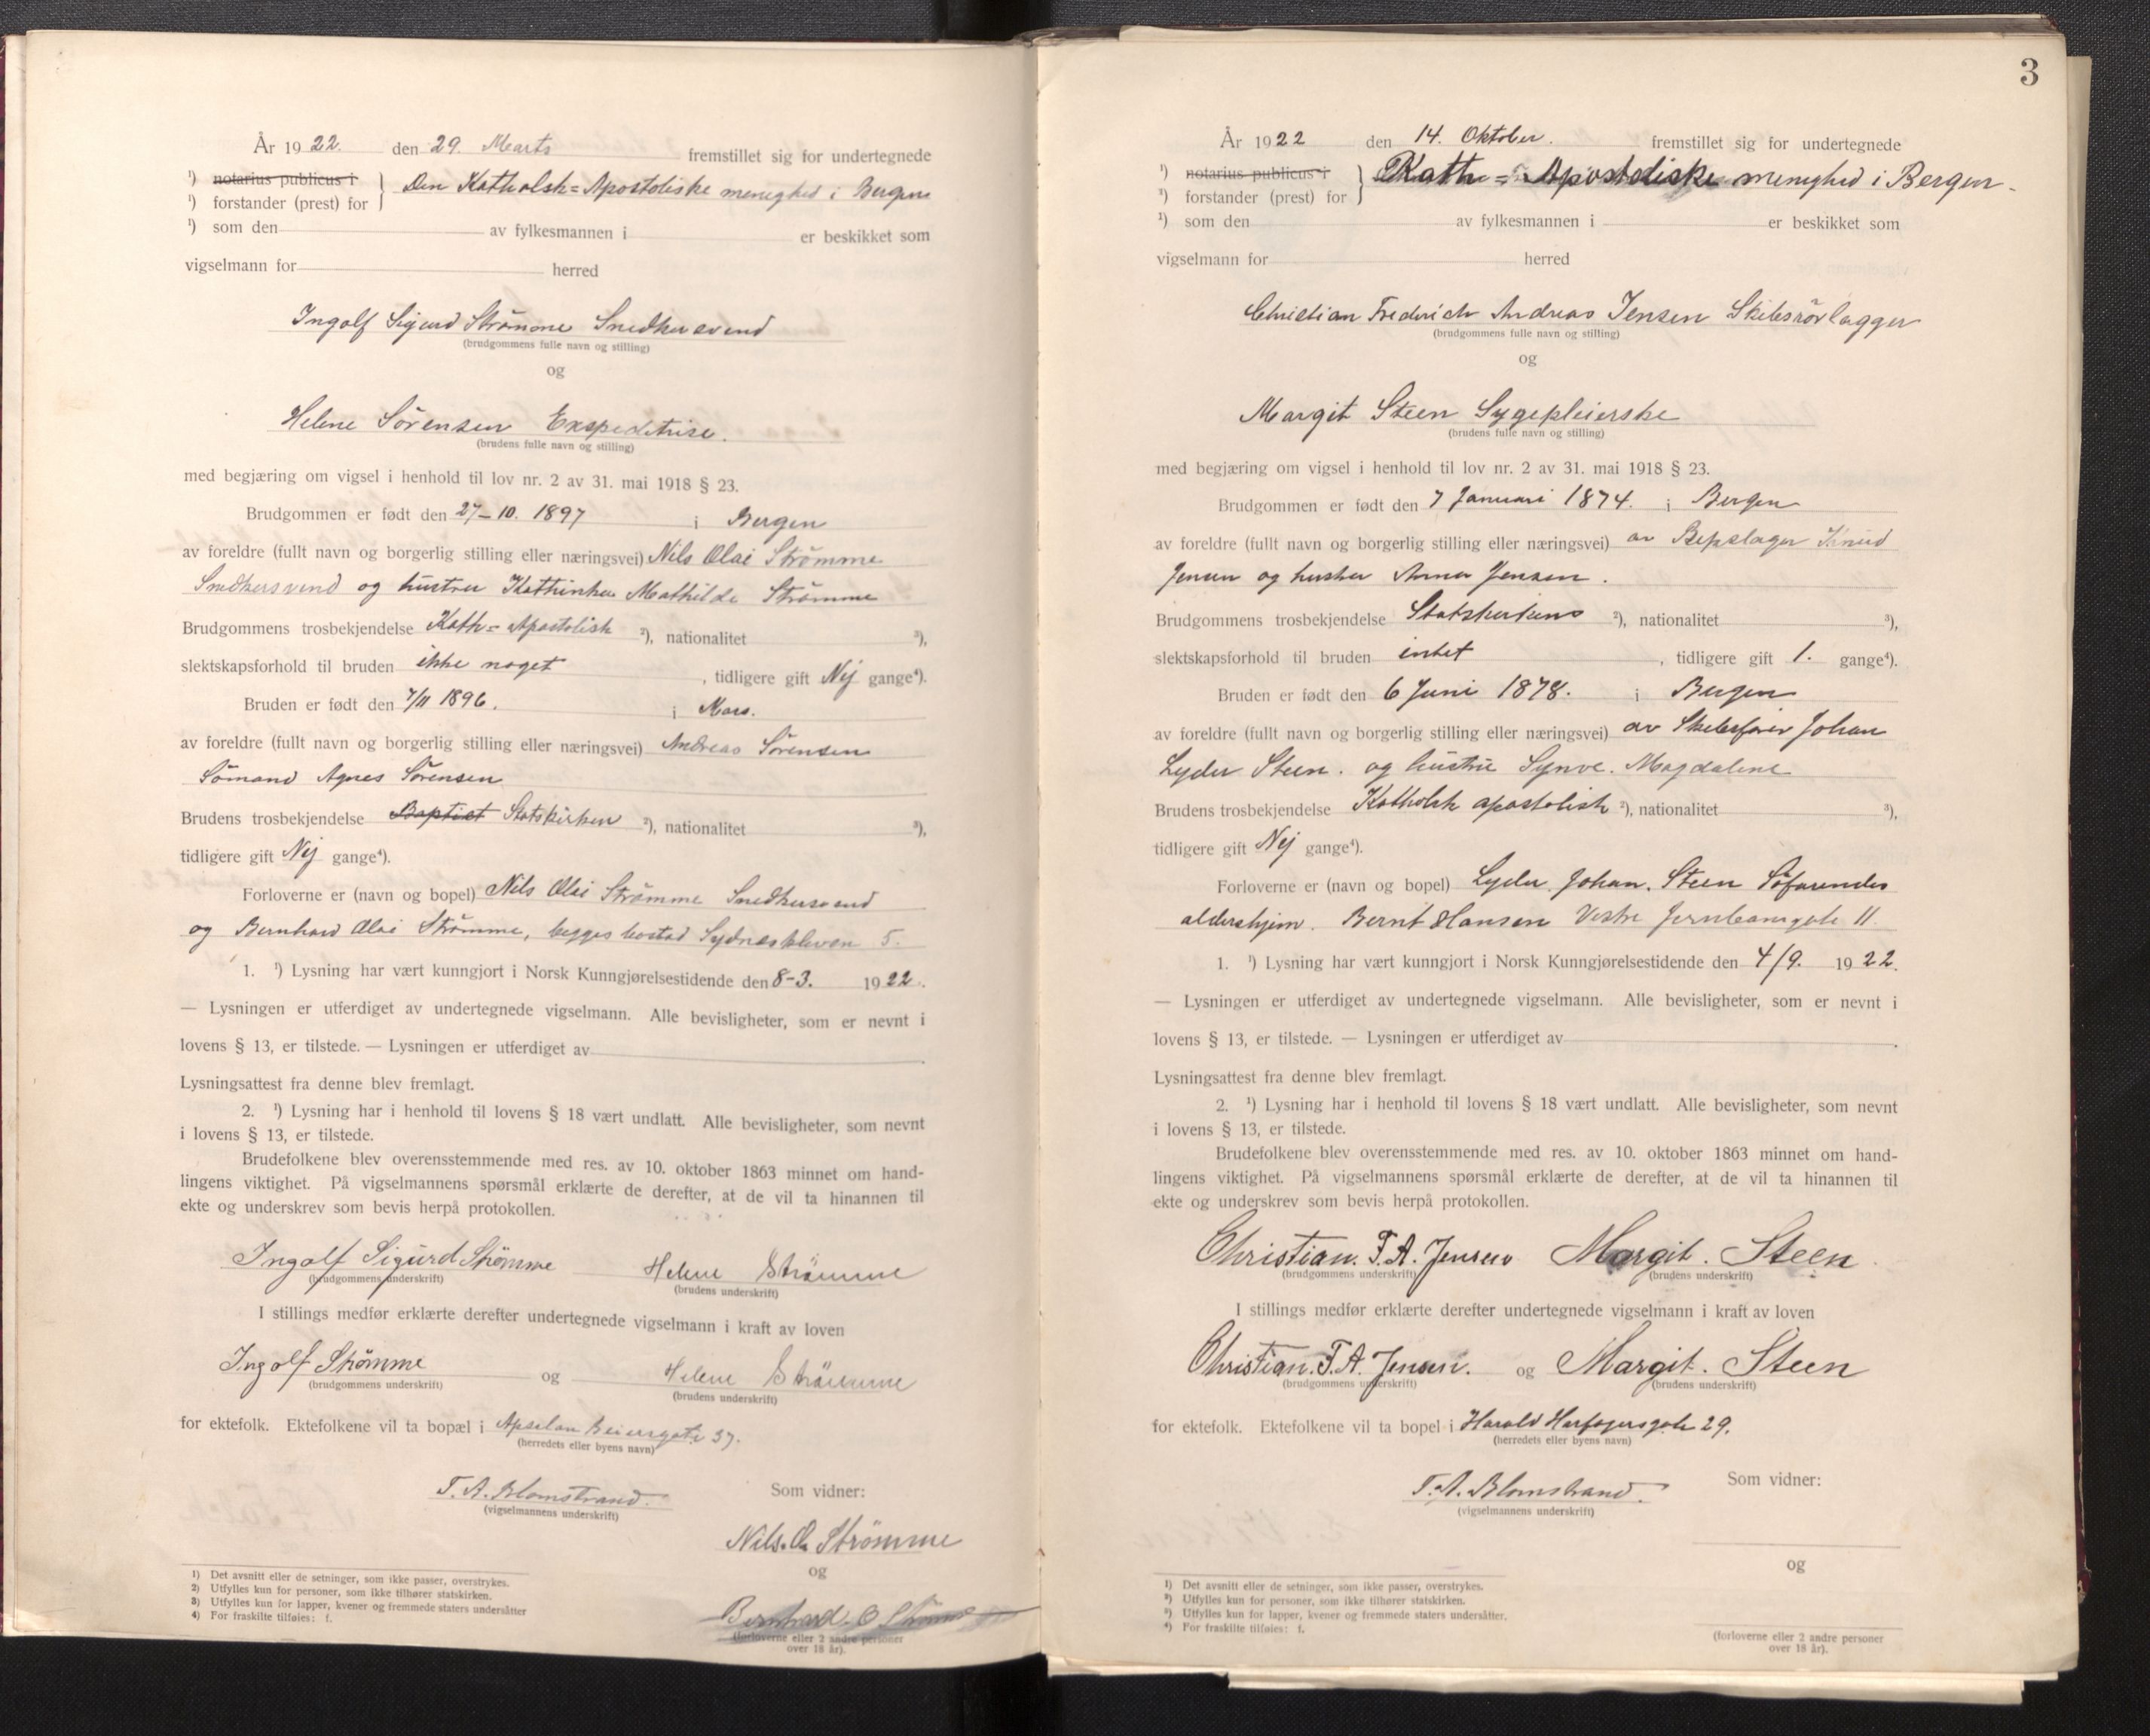 År 1922. den 29. Marts fremstillet sig for undertegnede
¹) notarius publicus i
¹) forstander (prest) for
Den Katholsk=Apostoliske menighed i Bergen
¹) som den av fylkesmannen i er beskikket som
vigselmann for herred
Ingolf Sigurd Strömme Snedkersvend
(brudgommens fulle navn og stilling)
og
Helene Sörensen Expeditrise.
(brudens fulle navn og stilling)
med begjæring om vigsel i henhold til lov nr. 2 av 31. mai 1918 § 23.
Brudgommen er født den 27-10. 1897 i Bergen
av foreldre (fullt navn og borgerlig stilling eller næringsvei) Nils Olai Strömme
Snedkersvend og hustru Kathinka Mathilde Strömme
Brudgommens trosbekjendelse Kath=Apostolisk ²), nationalitet ³),
slektskapsforhold til bruden ikke noget, tidligere gift Nej gange⁴).
Bruden er født den 7/11 1896. i Mors.
av foreldre (fullt navn og borgerlig stilling eller næringsvei) Andreas Sörensen
Sömand Agnes Sörensen
Brudens trosbekjendelse Baptist Statskirken ²), nationalitet ³),
tidligere gift Nej gange⁴).
Forloverne er (navn og bopel) Nils Olai Strömme Snedkersvend
og Bernhard Olai Strömme, begges bostad Sydneskleven 5.
1. ¹) Lysning har vært kunngjort i Norsk Kunngjørelsestidende den 8-3. 1922.
— Lysningen er utferdiget av undertegnede vigselmann. Alle bevisligheter, som er nevnt i
lovens § 13, er tilstede. — Lysningen er utferdiget av
Lysningsattest fra denne blev fremlagt.
2. ¹) Lysning har i henhold til lovens § 18 vært undlatt. Alle bevisligheter, som nevnt
i lovens § 13, er tilstede.
Brudefolkene blev overensstemmende med res. av 10. oktober 1863 minnet om hand-
lingens viktighet. På vigselmannens spørsmål erklærte de derefter, at de vil ta hinannen til
ekte og underskrev som bevis herpå protokollen.
Ingolf Sigurd Strömme Helene Strömme
(brudgommens underskrift) (brudens underskrift)
I stillings medfør erklærte derefter undertegnede vigselmann i kraft av loven
Ingolf Strömme og Helene Strömme
(brudgommens underskrift) (brudens underskrift)
for ektefolk. Ektefolkene vil ta bopæl i Apsalon Beiersgate 37.
(herredets eller byens navn)
F. A. Blomstrand. Som vidner:
(vigselmannens underskrift)
Nils. O. Strömme
og
Bernhard. O Strömme
(forloverne eller 2 andre personer
over 18 år).
1) Det avsnitt eller de setninger, som ikke passer, overstrykes.
2) Utfylles kun for personer, som ikke tilhører statskirken.
3) Utfylles kun for lapper, kvener og fremmede staters undersåtter
4) For fraskilte tilføies: f.
3
År 1922 den 14. Oktober. fremstillet sig for undertegnede
¹) notarius publicus i
¹) forstander (prest) for
Kath=Apostoliske menighed i Bergen.
¹) som den av fylkesmannen i er beskikket som
vigselmann for herred
Christian Frederich Andreas Jensen Skibsrörlægger
(brudgommens fulle navn og stilling)
og
Margit Steen Sygepleierske
(brudens fulle navn og stilling)
med begjæring om vigsel i henhold til lov nr. 2 av 31. mai 1918 § 23.
Brudgommen er født den 7 Januari 1874. i Bergen
av foreldre (fullt navn og borgerlig stilling eller næringsvei) av Repslager Knud
Jensen og hustru Anna Jensen.
Brudgommens trosbekjendelse Statskirkens ²), nationalitet ³),
slektskapsforhold til bruden intet, tidligere gift 1. gange⁴).
Bruden er født den 6 Juni 1878. i Bergen
av foreldre (fullt navn og borgerlig stilling eller næringsvei) av Skibsförer Johan
Lyder Steen. og hustru Synve. Magdalene
Brudens trosbekjendelse Katholsk apostolisk ²), nationalitet ³),
tidligere gift Nej gange⁴).
Forloverne er (navn og bopel) Lyder. Johan. Steen Söfarendes
aldershjem. Bernt Hansen Vestre Jernbanegate 11.
1. ¹) Lysning har vært kunngjort i Norsk Kunngjørelsestidende den 4/9. 1922.
— Lysningen er utferdiget av undertegnede vigselmann. Alle bevisligheter, som er nevnt i
lovens § 13, er tilstede. — Lysningen er utferdiget av
Lysningsattest fra denne blev fremlagt.
2. ¹) Lysning har i henhold til lovens § 18 vært undlatt. Alle bevisligheter, som nevnt
i lovens § 13, er tilstede.
Brudefolkene blev overensstemmende med res. av 10. oktober 1863 minnet om hand-
lingens viktighet. På vigselmannens spørsmål erklærte de derefter, at de vil ta hinannen til
ekte og underskrev som bevis herpå protokollen.
Christian. F. A. Jensen Margit. Steen
(brudgommens underskrift) (brudens underskrift)
I stillings medfør erklærte derefter undertegnede vigselmann i kraft av loven
Christian. F. A. Jensen. og Margit. Steen
(brudgommens underskrift) (brudens underskrift)
for ektefolk. Ektefolkene vil ta bopel i Harald Harfagersgate 29.
(herredets eller byens navn)
F. A. Blomstrand. Som vidner:
(vigselmannens underskrift)
og
(forloverne eller 2 andre personer
over 18 år).
¹) Det avsnitt eller de setninger, som ikke passer, overstrykes.
²) Utfylles kun for personer, som ikke tilhører statskirken.
³) Utfylles kun for lapper, kvener og fremmede staters undersåtter.
⁴) For fraskilte tilføies: f.